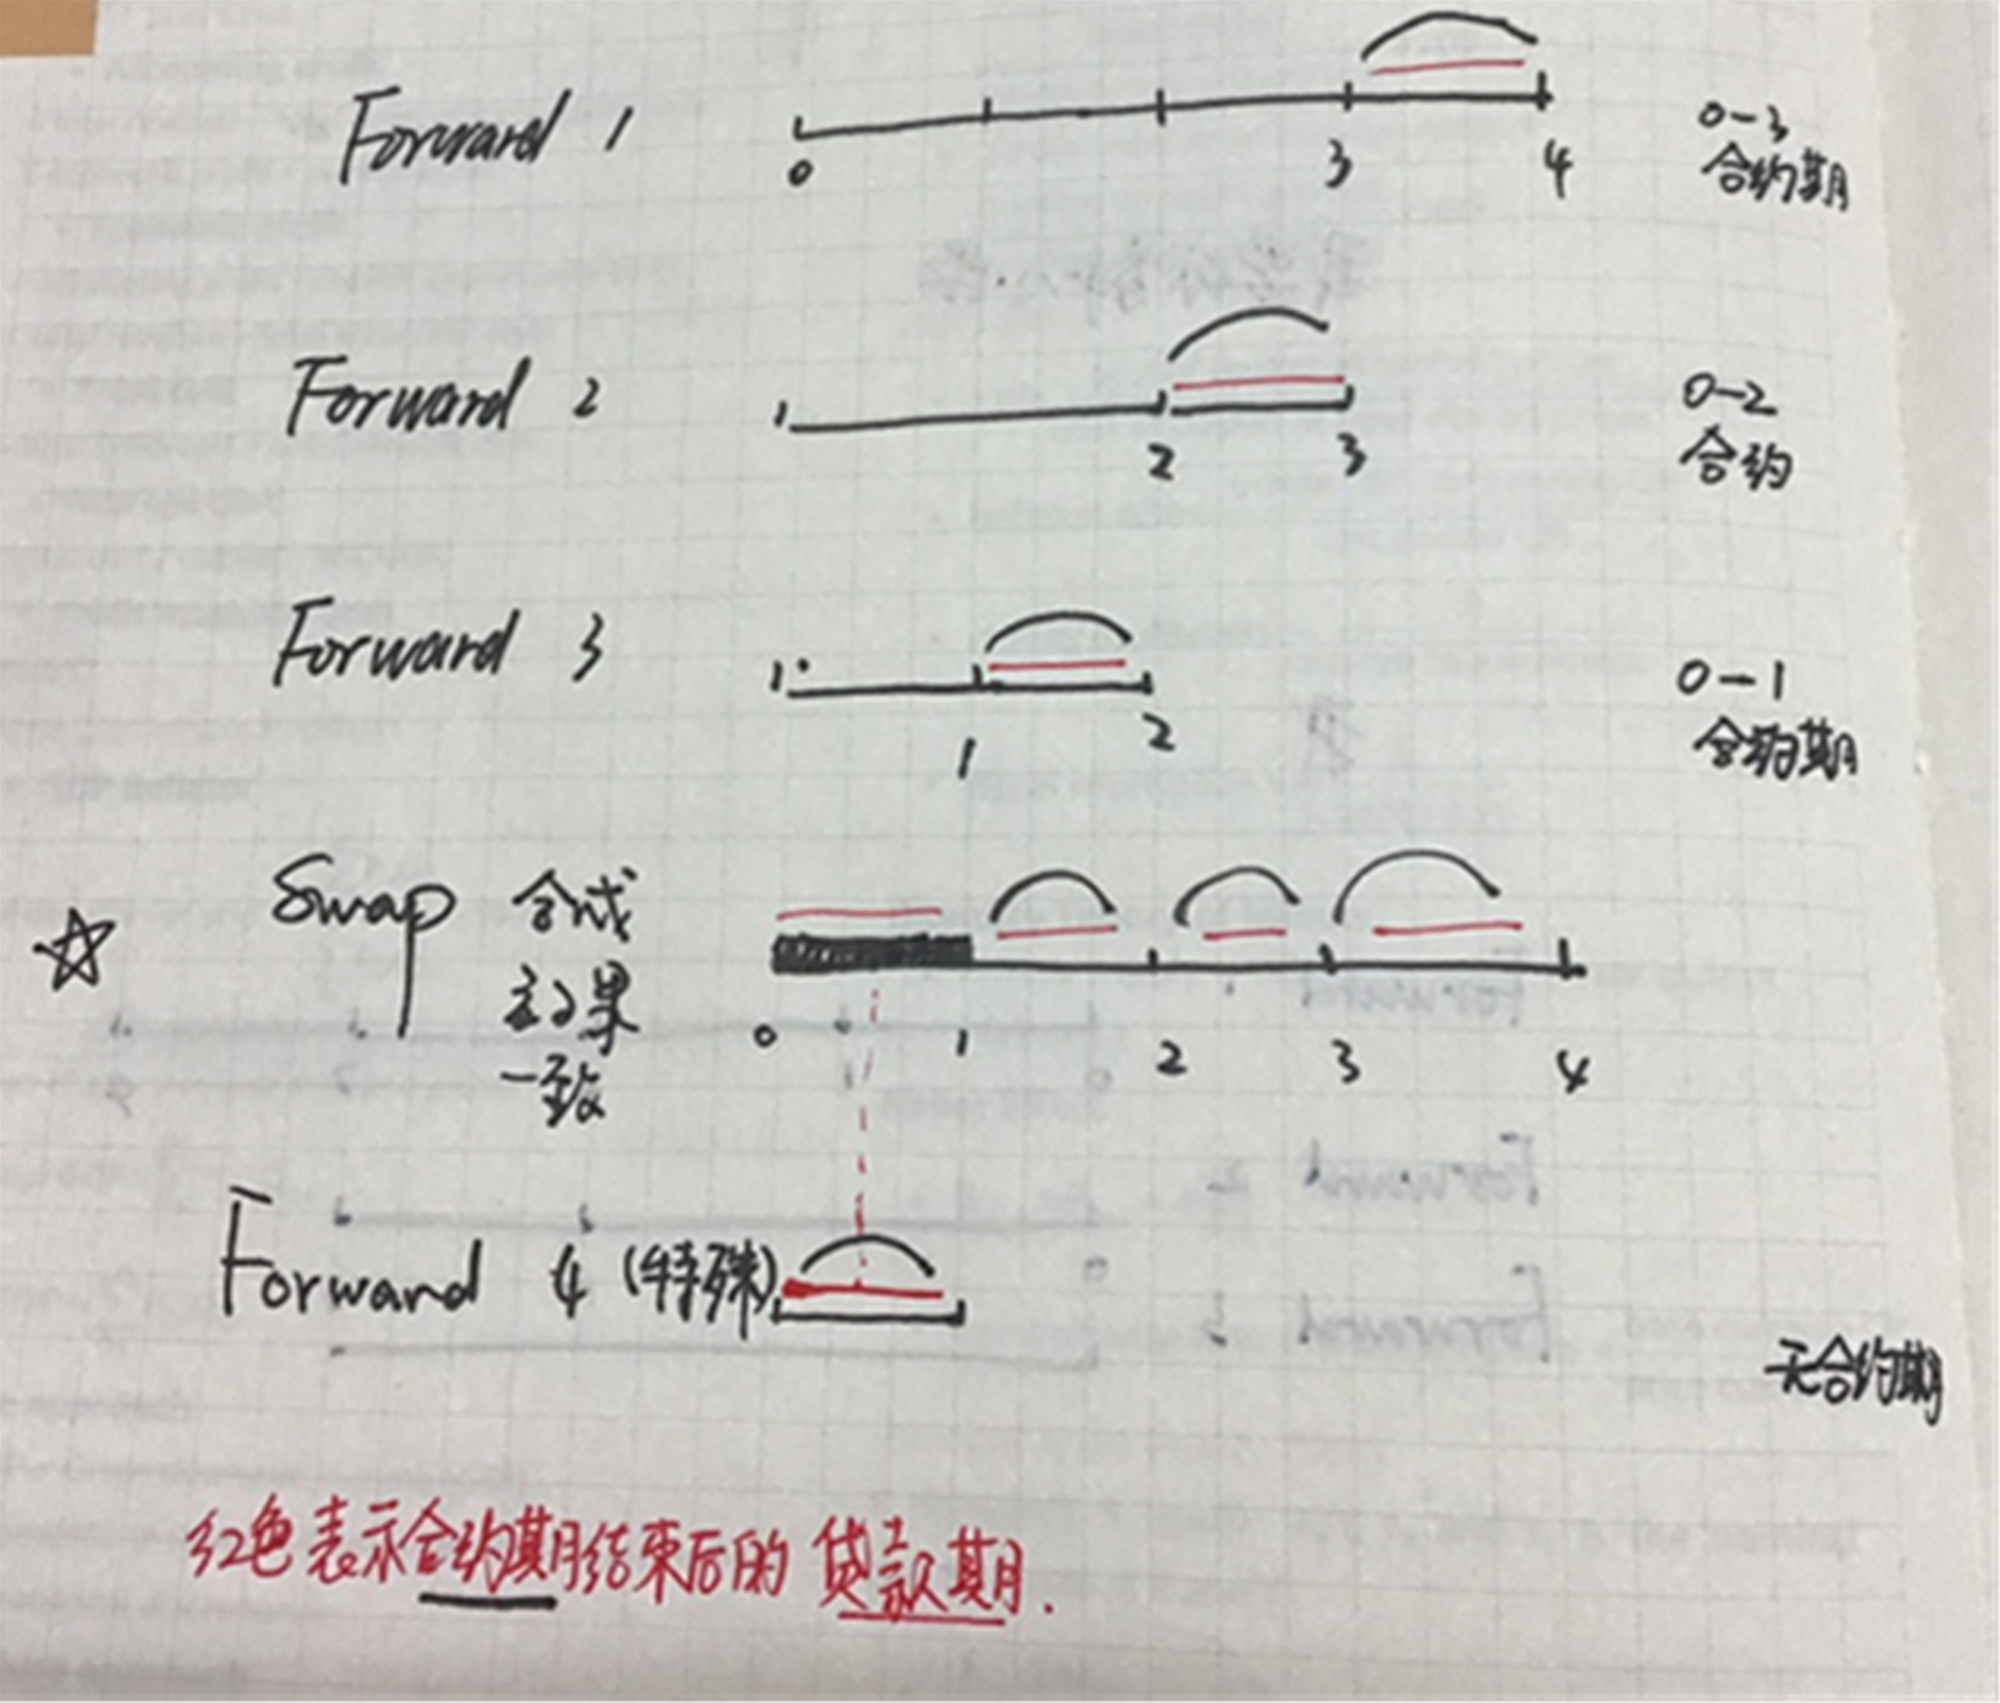 Forward 1
0 3 4
0-3
合约期
Forward 2
2 3
0-2
合约
Forward 3
1 2
0-1
合约期
Swap 合成
效果
一致
0 1 2 3 4
Forward 4 (特殊)
无合约期
红色表示合约期结束后的贷款期.